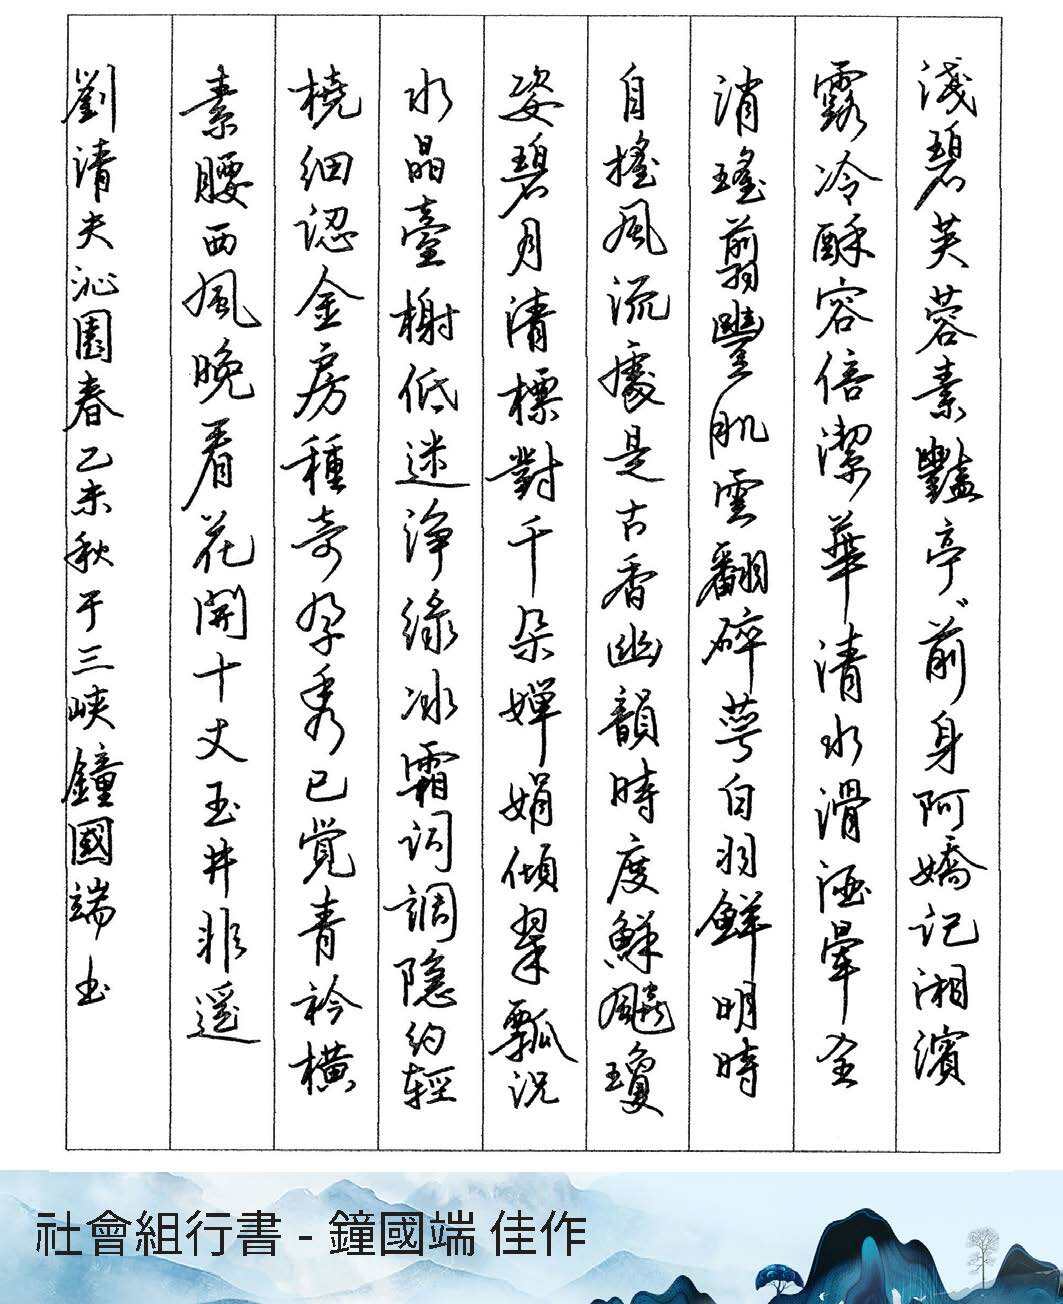 淺碧芙蓉素豔亭〻前身阿嬌記湘濱
露冷酥容倍潔華清水滑酒暈全
消瑤翦豐肌雲翻碎萼白羽鮮明時
自搖風流處是古香幽韻時度鮮飈瓊
姿碧月清標對千朵嬋娟傾翠瓢況
水晶臺榭低迷淨綠冰霜詞調隱約輕
橈細認金房種奇孕秀已覺青衿橫
素腰西風晚看花開十丈玉井非遙
劉清夫沁園春乙未秋于三峽鐘國端書
社會組行書 - 鐘國端 佳作